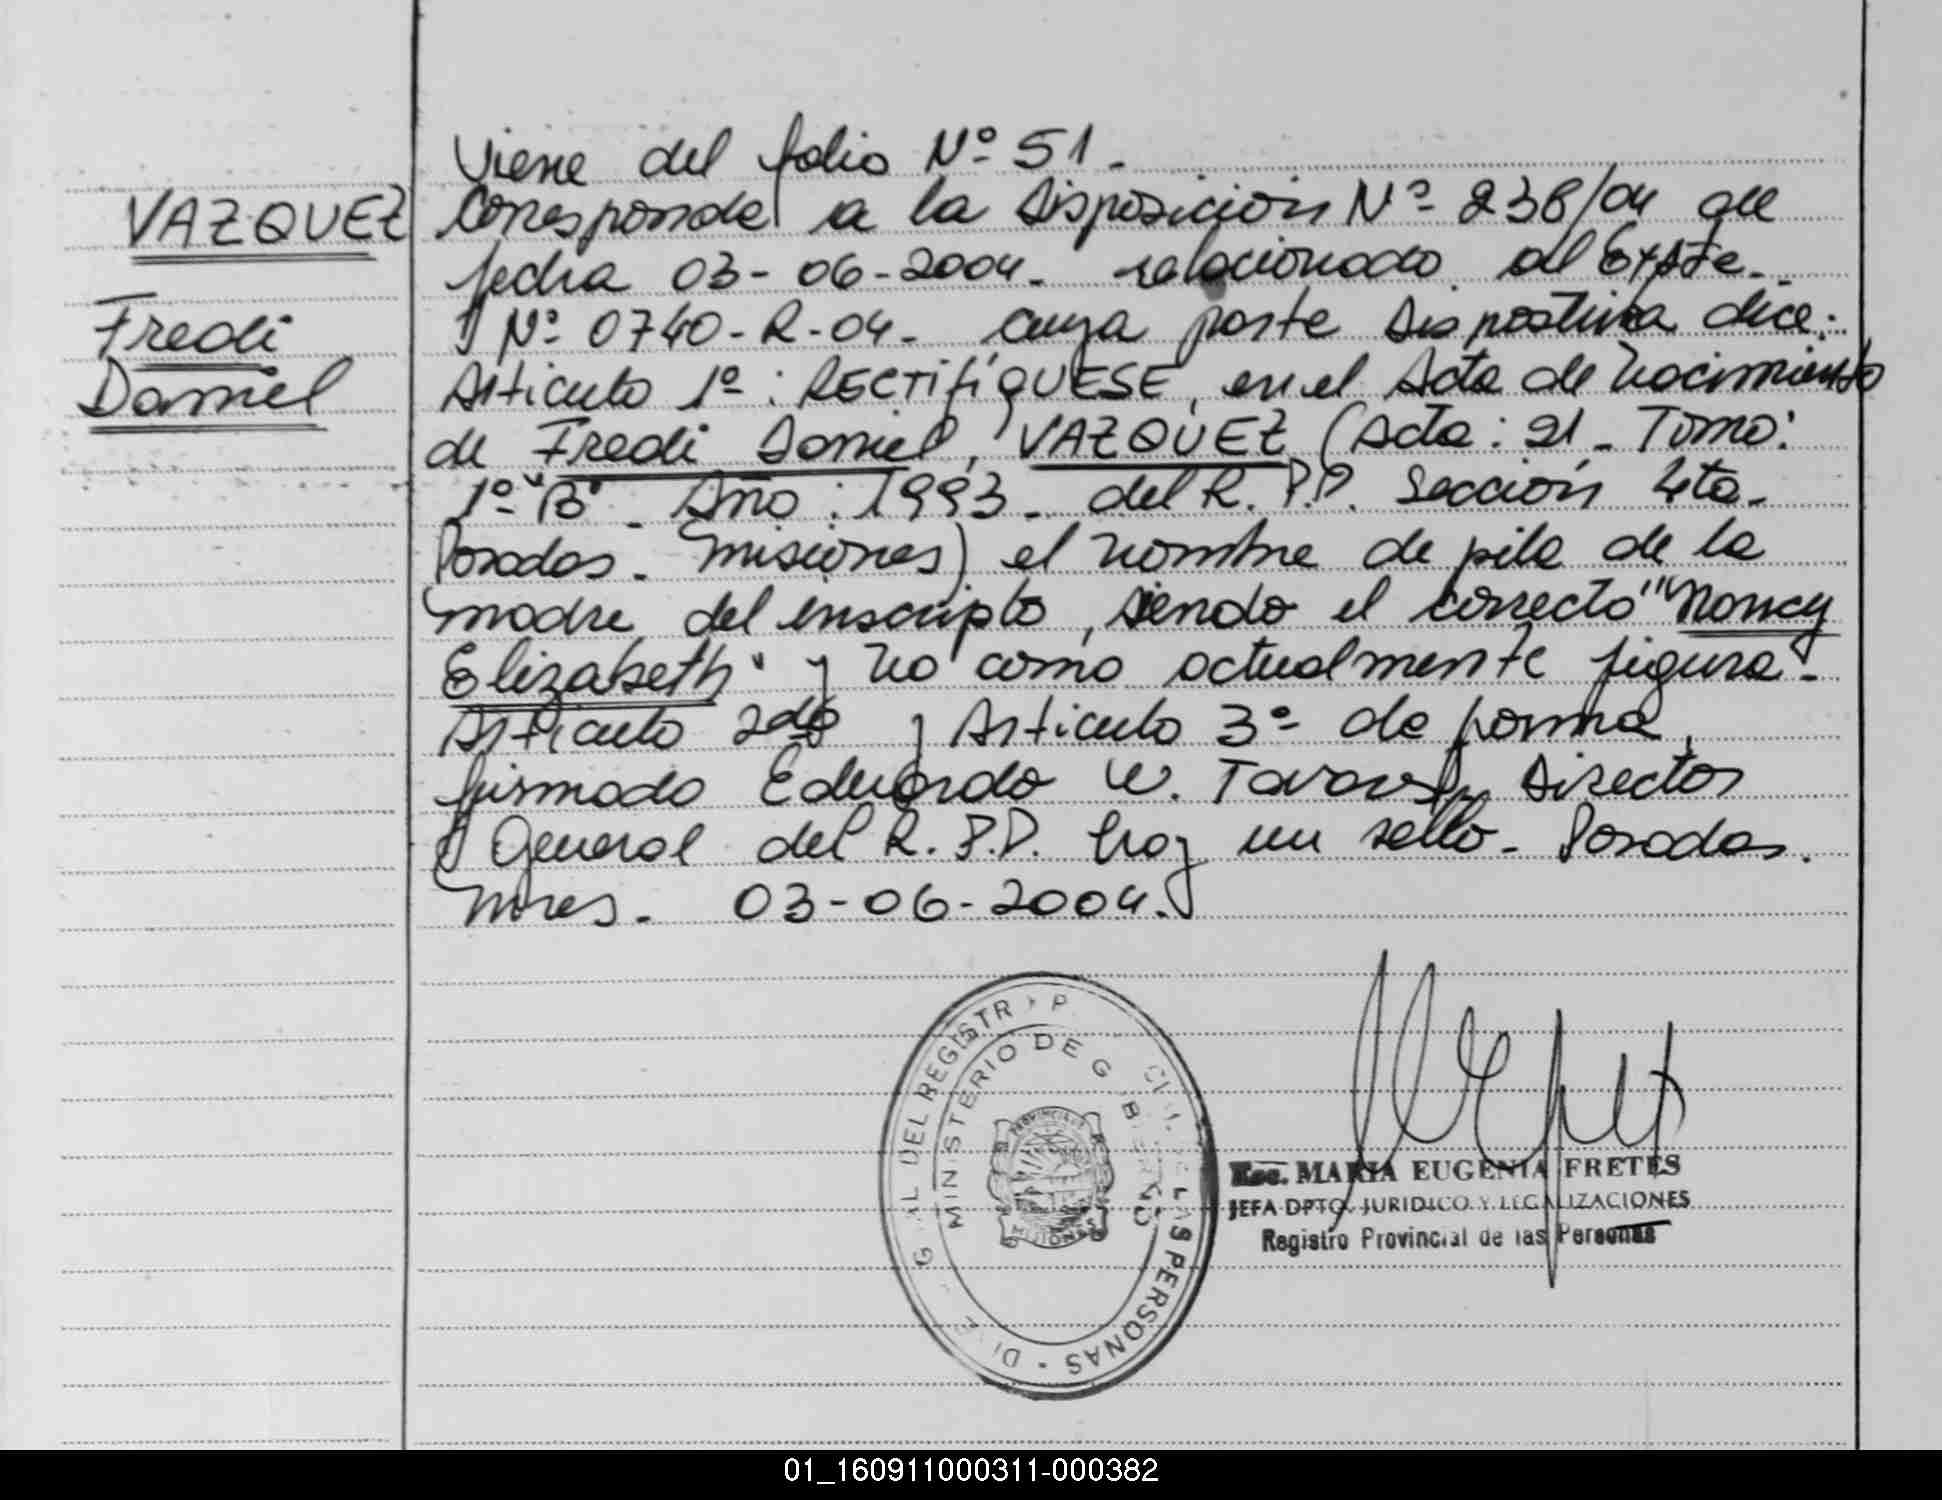 VAZQUEZ
Fredi
Daniel
Viene del folio Nº 51.
Corresponde a la Disposición Nº 238/04 de
fecha 03-06-2004. relacionado al Expte.
Nº 0740-R-04. cuya parte dispositiva dice:
Articulo 1º: RECTIFÍQUESE, en el Acta de Nacimiento
de Fredi Daniel, VAZQUEZ (Acta: 21 - Tomo:
1º "B" - Año: 1993 - del R.P.P. Sección 4ta.
Posadas. Misiones) el nombre de pila de la
madre del inscripto, siendo el correcto "Nancy
Elizabeth" y no como actualmente figura.-
Articulo 2do y Articulo 3º de forma,
firmado Eduardo W. Director
General del R.P.P. hay un sello - Posadas.
Mnes. 03-06-2004.
REGISTR P CIVIL DE LAS PERSONAS
MINISTERIO DE GOBIERNO
PROVINCIA DE
MISIONES
Esc. MARIA EUGENIA FRETES
JEFA DPTO. JURIDICO Y LEGALIZACIONES
Registro Provincial de las Personas
01_160911000311-000382